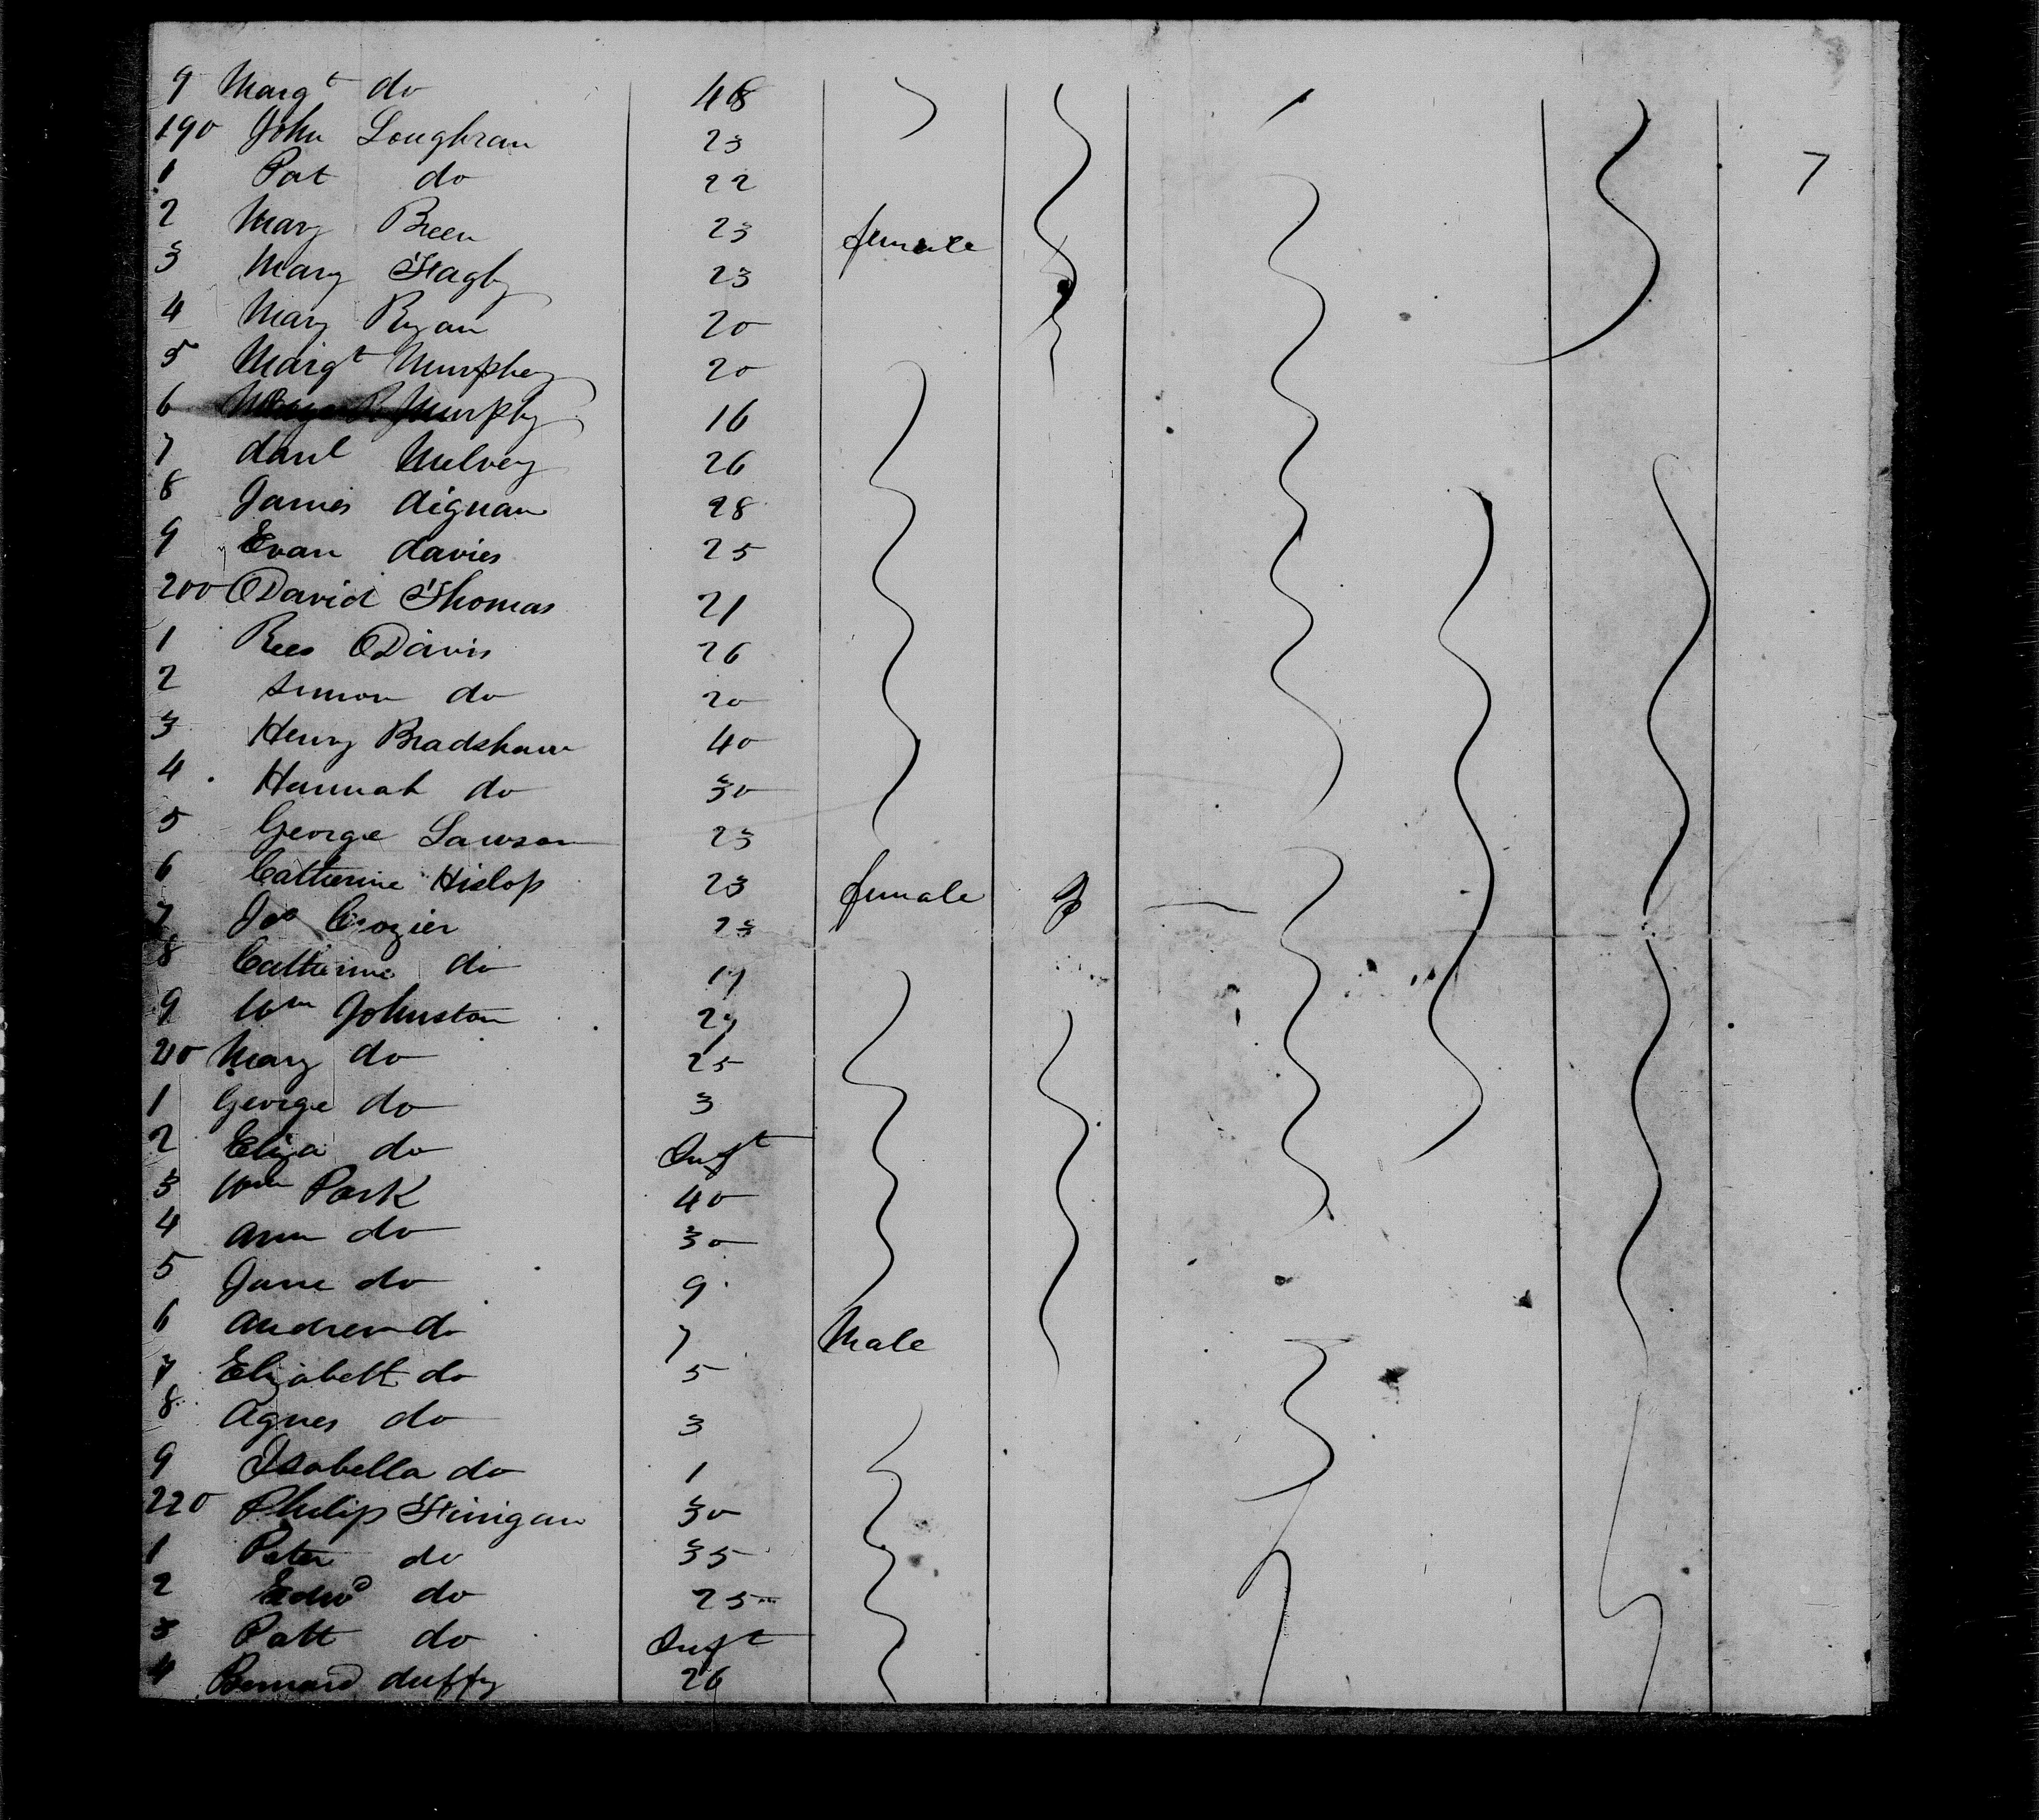 9 Margt do 48
190 John Loughran 23
1 Pat do 22 7
2 Mary Breen 23 female
3 Mary Hagby 23
4 Mary Ryan 20
5 Margt Murphey 20
6 Murphy 16
7 danl Melvey 26
8 James dignan 28
9 Evan davies 25
200 David Thomas 21
1 Rees Davis 26
2 Simon do 20
3 Henry Bradshaw 40
4 Hannah do 30
5 George Lawson 23
6 Catherine Hislop 23 female
7 Jas Crozier 23
8 Catherine do 17
9 Wm Johnston 27
210 Mary do 25
1 George do 3
2 Eliza do Inft
3 Wm Park 40
4 Ann do 30
5 Jane do 9
6 Andrew do 7 Male
7 Elizabett do 5
8 Agnes do 3
9 Isabella do 1
220 Philip Finigan 30
1 Peter do 35
2 Edwd do 25
3 Patt do Inft
4 Bernard duffy 26